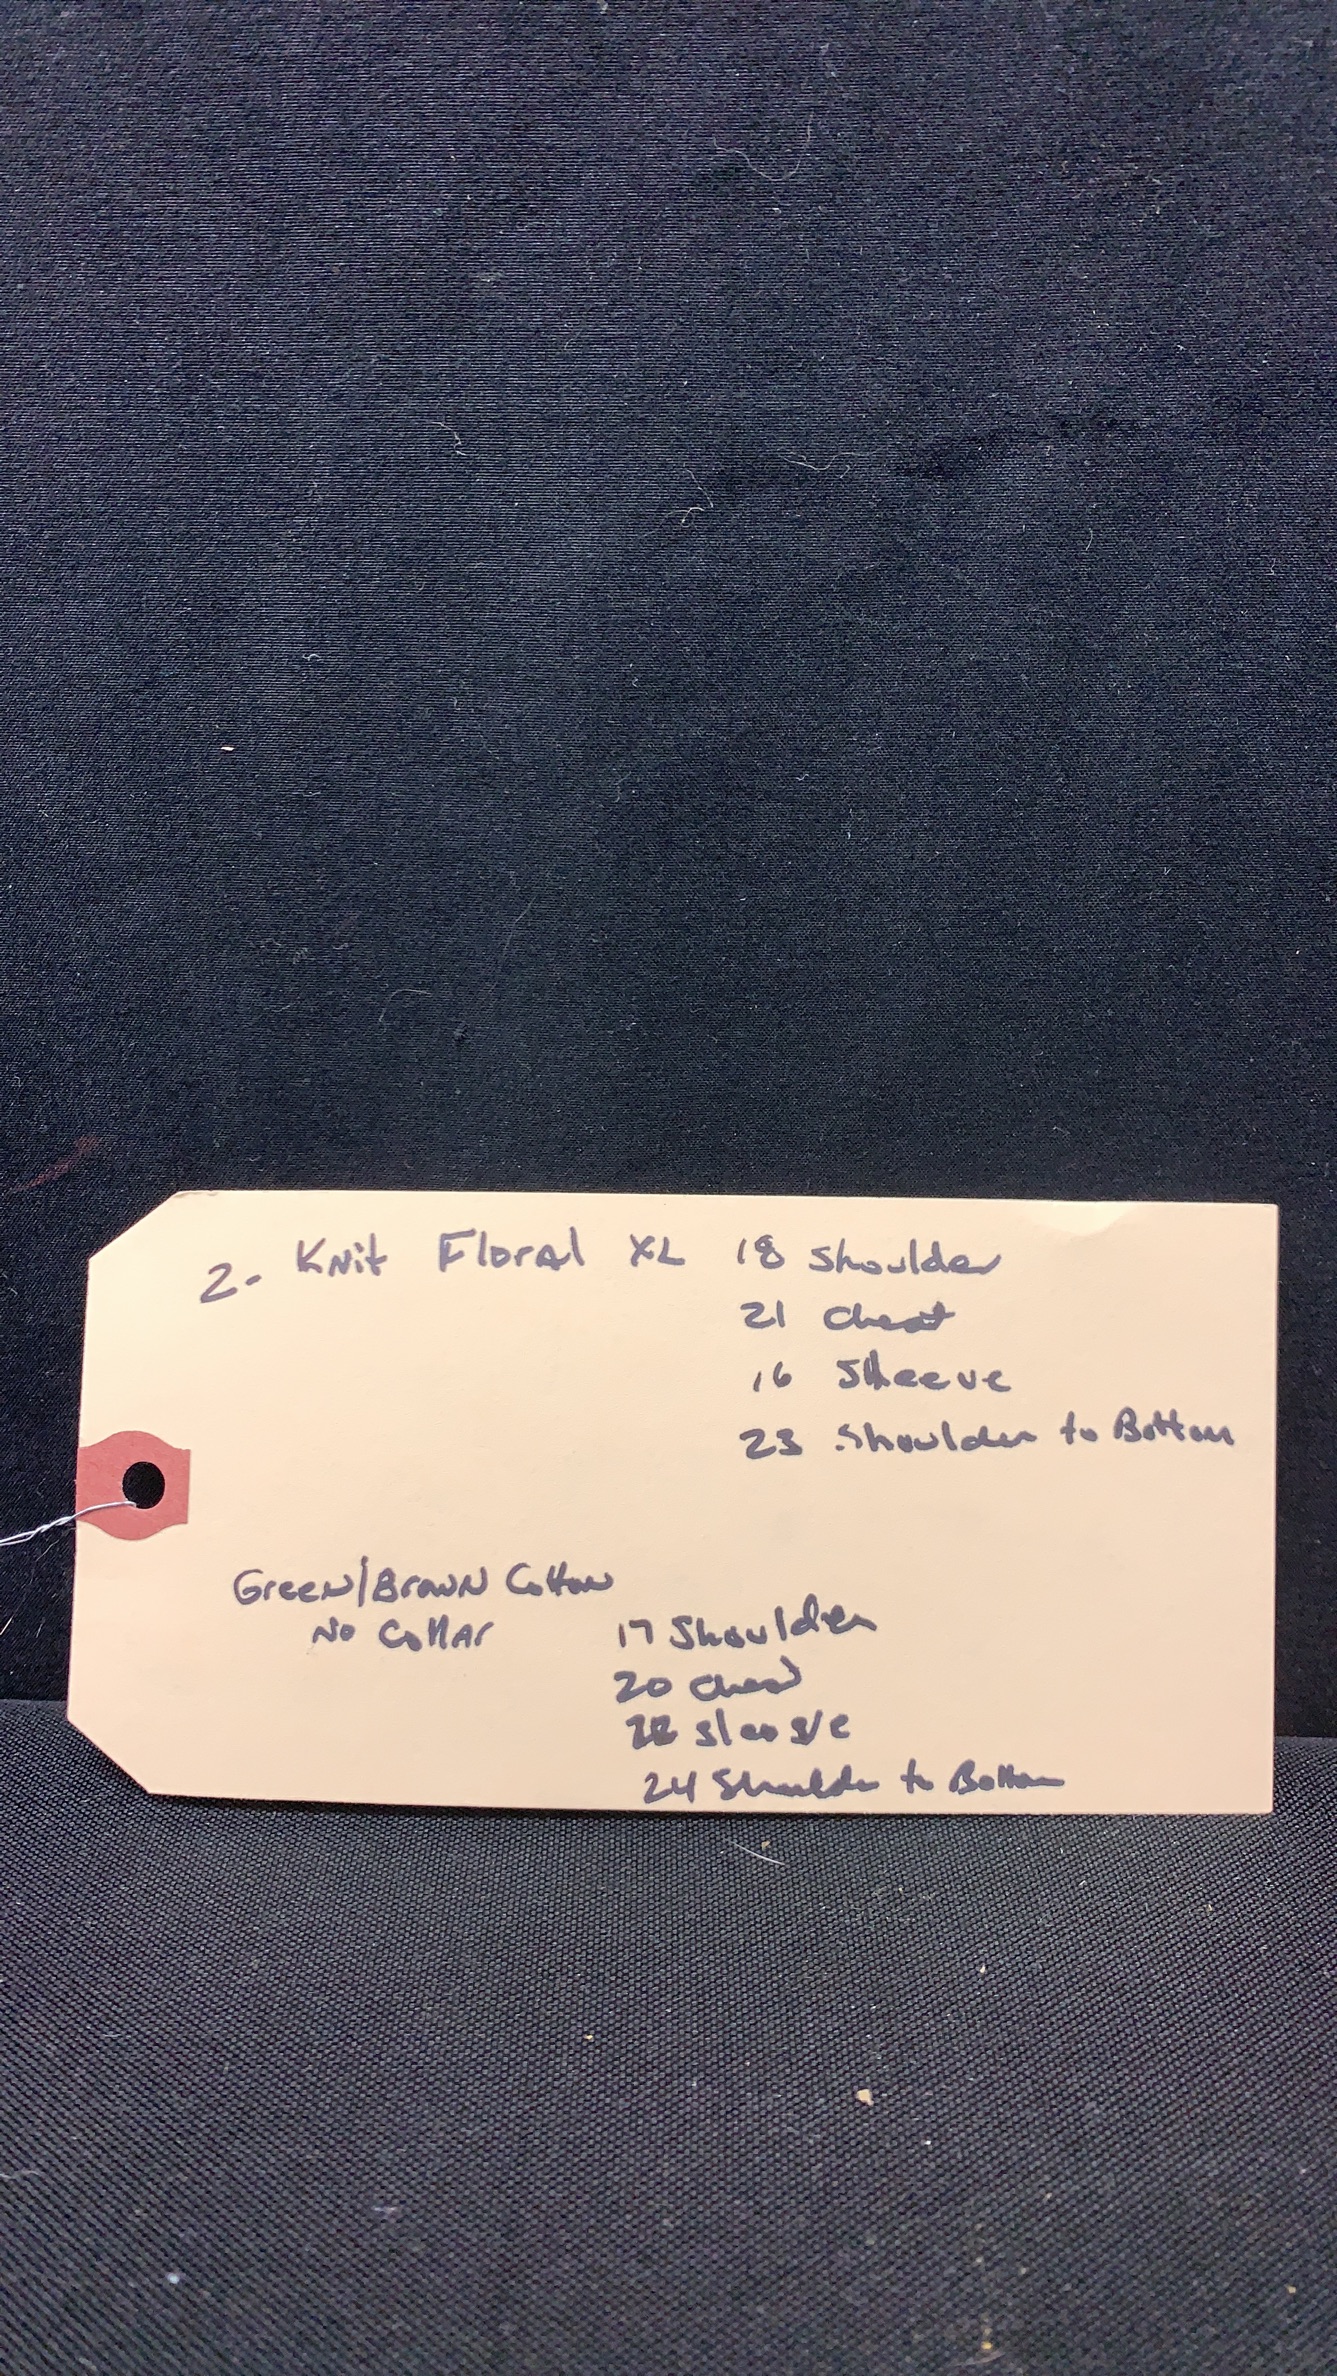 2- Knit Floral XL 18 Shoulder
21 Chest
16 Sleeve
23 Shoulder to Bottom
Green/Brown Cotton
No Collar 17 Shoulder
20 Chest
Sleeve
24 Shoulder to Bottom